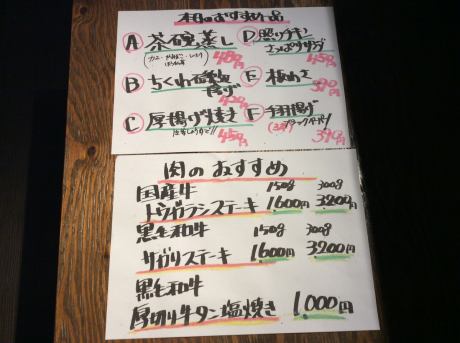 本日のおすすめ一品
A 茶碗蒸し
480円
B ちくわ磯辺
揚げ
420円
C 厚揚げ焼き
450円
D 照りチキン
さっぱりサラダ
E 板わさ
390円
F 手羽揚げ
ブラックペパー
390円
肉のおすすめ
国産牛 150g 300g
トウガラシステーキ 1600円 3200円
黒毛和牛 150g 300g
サガリステーキ 1600円 3200円
黒毛和牛
厚切り牛タン塩焼き 1,000円